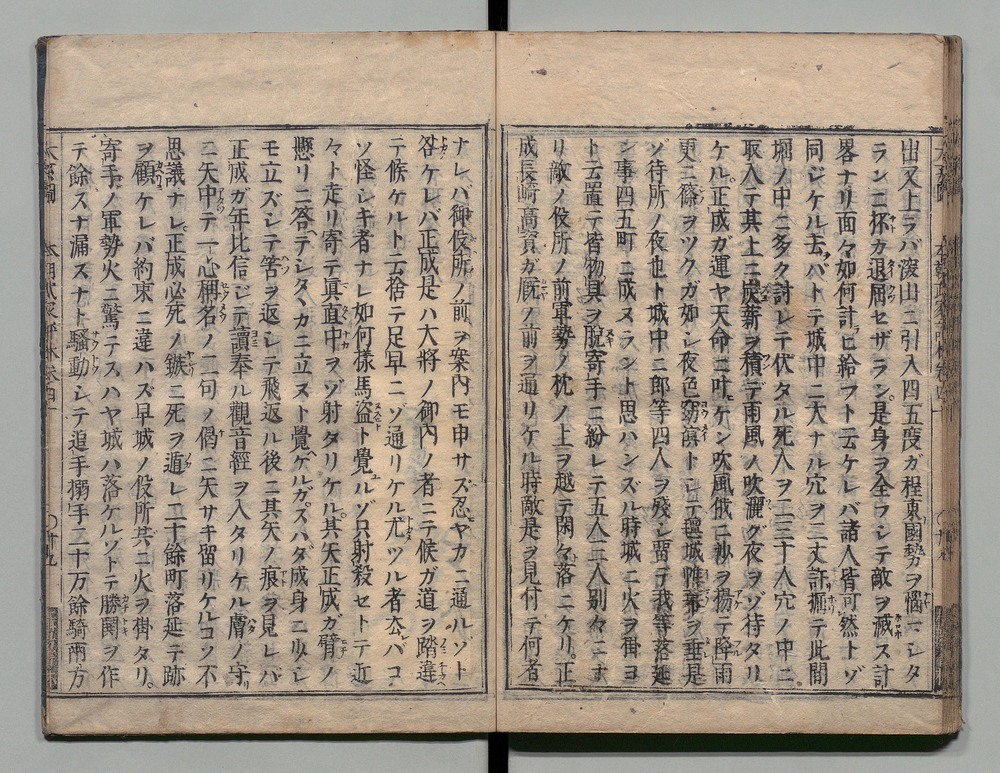 出又上ラバ深山ニ引入四五度ガ程東國勢ヲ惱マシタ
ランニ杯カ退屈セザラン是身ヲ全ウシテ敵ヲ滅ス計
畧ナリ面々如何計ヒ給フト云ケレバ諸人皆可然トゾ
同ジケル去バトテ城中ニ大ナル穴ヲ二丈許掘テ此間
堀ノ中ニ多ク討レテ伏タル死人ヲ二三十人穴ノ中ニ
取入テ其上ニ炭薪ヲ積テ雨風ノ吹灑グ夜ヲゾ待タリ
ケル正成ガ運ヤ天命ニ叶ケン吹風俄ニ沙ヲ揚テ降雨
更ニ篠ヲツクガ如シ夜色窈溟トシテ氈城惟幕ヲ垂是
ゾ待所ノ夜也ト城中ニ郎等四人ヲ殘シ畱テ我等落延
ン事四五町ニ成ヌラント思ハンズル時城ニ火ヲ掛ヨ
ト云置テ皆物具ヲ脱寄手ニ紛レテ五人三人別々ニナ
リ敵ノ役所ノ前軍勢ノ枕ノ上ヲ越テ閑々落ニケリ正
成長崎高資ガ厩ノ前ヲ通リケル時敵是ヲ見付テ何者
ナレバ御役所ノ前ヲ案内モ申サズ忍ヤカニ通ルゾト
咎ケレバ正成是ハ大將ノ御内ノ者ニテ候ガ道ヲ踏違
テ候ケルト云捨テ足早ニゾ通リケル尤ツル者去バコ
ソ怪シキ者ナレ如何樣馬盜ト覺ルゾ只射殺セトテ近
々ト走リ寄テ眞直中ヲゾ射タリケル其矢正成ガ臂ノ
懸リニ答テシタヽカニ立ヌト覺ヘケルガズハダ成身ニ少シ
モ立ズシテ筈ヲ返シテ飛返ル後ニ其矢ノ痕ヲ見レバ
正成ガ年比信ジテ讀奉ル觀音經ヲ入タリケル膚ノ守
ニ矢中テ一心稱名ノ二句ノ偈ニ矢サキ留リケルコソ不
思議ナレ正成必死ノ鏃ニ死ヲ遁レ二十餘町落延テ跡
ヲ顧ケレバ約束ニ違ハズ早城ノ役所共ニ火ヲ掛タリ
寄手ノ軍勢火ニ驚テスハヤ城ハ落ケルゾトテ勝閧ヲ作
テ餘スナ漏スナト騷動シテ追手搦手二十万餘騎兩方